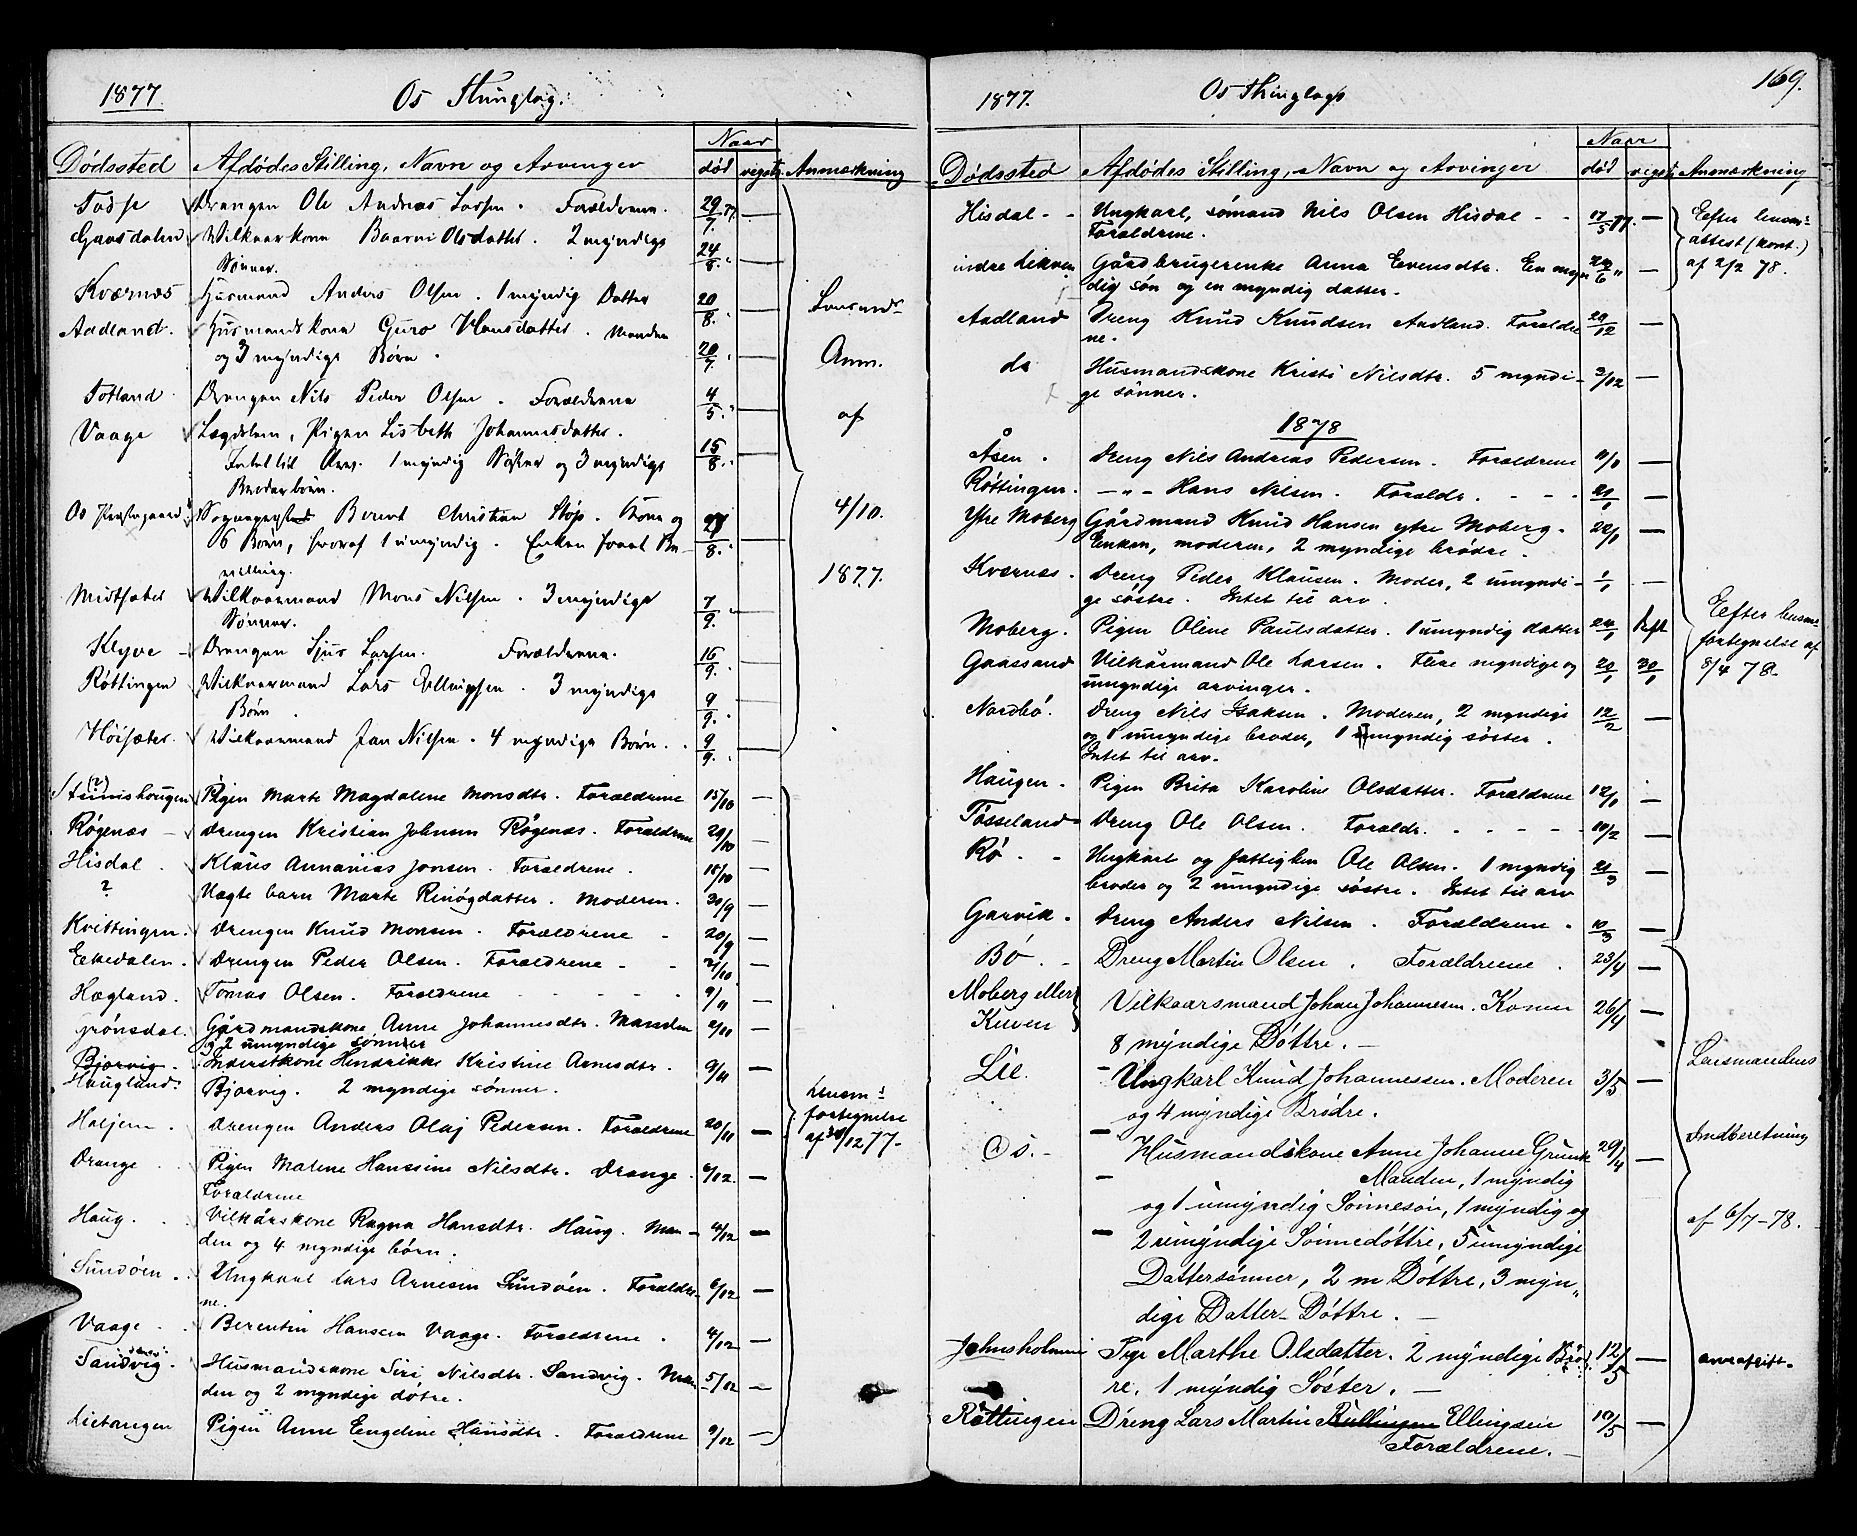 1877. Os Thinglag.
Naar
Dødssted Afdødes Stilling, Navn og Arvinger død registr. Anmærkning
Drengen Ole Andreas Larsen. Forældrene. 29/7. 77. —
Gaasdalen Vilkaarkone Olsdatter. 2 myndige 24/8. —
Sønner.
Kværnæs Husmand Anders Olsen. 1 myndig Datter 20/8. —
Aadland. Husmandskone Guro Hansdatter. Manden
og 3 myndige Børn. 20/7. —
Totland Drengen Nils Peder Olsen. Forældrene 4/5. —
Vaage Lægdslem, Pigen Lisbeth Johannesdatter.
Intet til Arv. 1 myndig Søster og 3 myndige 15/8. —
Broderbørn.
Os Præstegaard Sogneprest Berent Christian Kone og
6 Børn, hvoraf 1 umyndig. Enken 8. —
villing.
Midtsæter Vilkaarmand Mons Nilsen. 3 myndige 7/9. —
Sønner.
Klyve Drengen Sjur Larsen. Forældrene. 16/9. —
Røttingen Vilkaarmand Lars Ellingsen. 3 myndige 9/9. —
Børn.
Høisæter. Vilkaarmand Jan Nilsen. 4 myndige Børn. 9/9. —
Lensmds
Anm.
af
4/10.
1877.
(?)
Pigen Marte Magdalene Monsdtr. Forældrene 15/10 —
Røgenæs — Drengen Kristian Johnsen Røgenæs. Forældrene 29/10 —
Hisdal. Klaus Annanias Jonsen. Forældrene. 18/10 —
? Uægte barn Marte Rinøgdatter. Moderen. 30/9 —
Kvittingen. Drengen Knud Monsen. Forældrene 20/9 —
Ekedalen. Drengen Peder Olsen. Forældrene - - 21/10 —
Hægland. Tomas Olsen. Forældrene - - - 9/11 —
Grønsdal. Gårdmandskone Anne Johannesdtr. Manden 2/11 —
og 2 umyndige sønner
Bjorvig. Inderstkone Hendrikke Kristine Arnesdtr. 9/11 —
Haugland. Bjorvig. 2 myndige sønner.
Holjem. Drengen Anders Olaj Pedersen. Forældrene 20/11 —
Drange. Pigen Malene Hanssine Nilsdtr. Drange. 6/12. —
Forældrene
Haug. Vilkårskone Ragna Hansdtr. Haug. Man- 4/12 —
den og 4 myndige børn.
Sundøen. Ungkarl Lars Arnesen Sundøen. Forældre- 6/12 —
ne.
Vaage. Berentin Hansen Vaage. Forældrene. 4/12 —
Sandvig. Husmandskone Siri Nilsdtr. Sandvig. Man- 5/12 —
den og 2 myndige døtre.
Lietrangen Pigen Anne Engeline Hansdtr. Forældrene 9/12 —
Lensm:s
fortegnelse
af 30/12 77-
1877. Os Thinglags 169.
Naar
Dødssted Afdødes Stilling, Navn og Arvinger død registr. Anmærkning
Hisdal - - Ungkarl, sømand Nils Olsen Hisdal - - 17/5 77. —
Forældrene.
indre Lekven Gårdbrugerenke Anna Evensdtr. En myn- 24/6 " —
dig søn og en myndig datter.
Efter lensm-
attest (kont.)
af 2/2 78.
Aadland Dreng Knud Knudsen Aadland. Forældre 29/12 —
ne.
do Husmandskone Kristi Nilsdtr. 5 myndi- 3/12 —
ge sønner.
1878
Åsen. Dreng Nils Andreas Pedersen. Forældrene 11/1 —
Røttingen. — " — Hans Nilsen. Forældr. - - - 21/1 —
Ytre Moberg Gårdmand Knud Hansen ytre Moberg. 22/1 —
Enken, moderen, 2 myndige brødre.
Kværnæs. Dreng Peder Klausen. Moder, 2 umyndi- 1/1 —
ge søstre. Intet til arv.
Moberg. Pigen Olene Paulsdatter. 1 umyndig datter 24/1
Gaassand Vilkårmand Ole Larsen. Flere myndige og 20/1 30/1
umyndige arvinger.
Nordbø. Dreng Nils Isaksen. Moderen, 2 myndige 12/2 —
og 1 umyndige broder, 1 umyndig søster.
Intet til arv.
Haugen. Pigen Brita Karoline Olsdatter. Forældrene 12/1 —
Tøsseland Dreng Ole Olsen. Forældr. - - - - 10/2 —
Rø. - Ungkarl og fattiglem Ole Olsen. 1 myndig 21/3 —
broder og 2 umyndige søstre. Intet til arv
Garvik. Dreng Anders Nilsen. Forældrene. 10/3 —
Efter lensm:
fortegnelse af
8/4 78.
Bø. - Dreng Martin Olsen. Forældrene. 23/4 —
Moberg eller Vilkaarsmand Johan Johannesen. Konen 26/4 —
Kuven
8 myndige Døttre. —
Lie. Ungkarl Knud Johannessen. Moderen 3/5 —
og 4 myndige Brødre.
Os. - Husmandskone Anne Johanne Grunk 29/4 —
Manden, 1 myndig
og 1 umyndig Sønnesøn, 1 myndig og
2 umyndige Sønnedøttre, 5 umyndige
Dattersønner, 2 m Døttre, 3 myn„
dige Datter-Døttre. —
Johnsholmen Pige Marthe Olsdatter. 2 myndige Brød- 12/5 —
re, 1 myndig Søster. —
Røttingen Dreng Lars Martin Rullingen Ellingsen 10/5 —
Forældrene. —
Lensmandens
Indberetning
af 6/7-78.